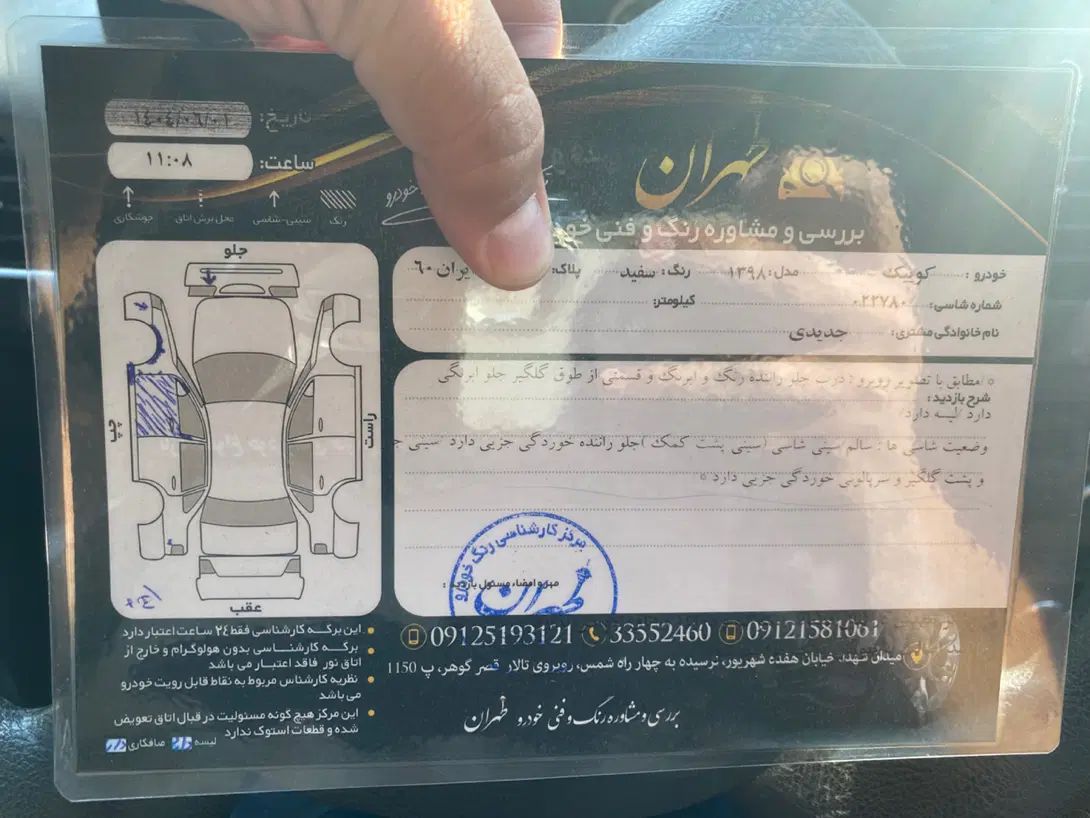 تاریخ: ۱۴۰۴/۰۶/۰۱
ساعت: ۱۱:۰۸
رنگ
سینی-شاسی
محل برش اتاق
جوشکاری
خودرو
طهران
بررسی و مشاوره رنگ و فنی خو
خودرو: کوییک مدل: ۱۳۹۸ رنگ: سفید پلاک: یران ۶۰
شماره شاسی: ۰۲۲۷۸۰ کیلومتر:
نام خانوادگی مشتری: جدیدی
جلو
چپ
راست
عقب
مطابق با تصویر روبرو : درب جلو راننده رنگ و ابرنگ و قسمتی از طوق گلگیر جلو ابرنگی
شرح بازدید:
دارد /لیسه دارد/
وضعیت شاسی ها : سالم/سینی شاسی (سینی پشت کمک )جلو راننده خوردگی جزیی دارد سینی ج
و پشت گلگیر و سرپالونی خوردگی جزیی دارد
مرکز کارشناسی رنگ خودرو
طهران
مهر و امضاء مسئول بازدید :
این برگه کارشناسی فقط ۲۴ ساعت اعتبار دارد
برگه کارشناسی بدون هولوگرام و خارج از
اتاق نور فاقد اعتبار می باشد
نظریه کارشناس مربوط به نقاط قابل رویت خودرو
می باشد
این مرکز هیچ گونه مسئولیت در قبال اتاق تعویض
شده و قطعات استوک ندارد
لیسه صافکاری
09121581061 33552460 09125193121
میدان شهدا، خیابان هفده شهریور، نرسیده به چهار راه شمس، روبروی تالار قصر گوهر، پ 1150
بررسی و مشاوره رنگ و فنی خودرو طهران